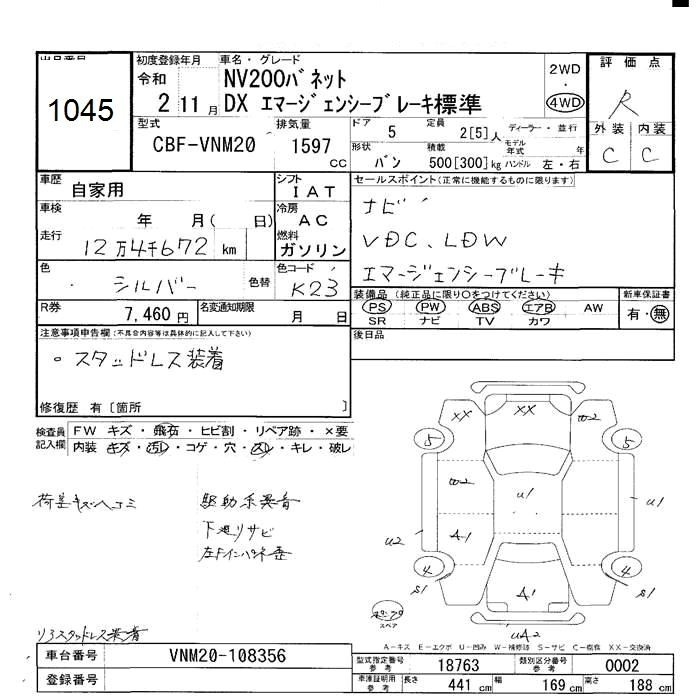 出品番号
1045
初度登録年月
令和
2 11 月
車名・グレード
NV200バネット
DX エマージェンシーブレーキ標準
2WD
・
4WD
評価点
R
外装 内装
C C
型式
CBF-VNM20
排気量
1597 cc
ドア 5
定員 2[5] 人
ディーラー・並行
モデル年式 年
形状 バン
積載 500[300] kg
ハンドル 左・右
車歴
自家用
シフト
I A T
車検
年 月( 日)
冷房
A C
走行
12万4千672 km
燃料
ガソリン
色
シルバー 色替
色コード
K23
R券
7,460 円
名変通知期限
月 日
セールスポイント(正常に機能するものに限ります)
ナビ
VDC、LDW
エマージェンシーブレーキ
装備品 (純正品に限り○をつけてください)
PS PW ABS エアB AW
SR ナビ TV カワ
新車保証書
有・無
後日品
注意事項申告欄(不具合内容等は具体的に記入して下さい)
○ スタッドレス装着
修復歴 有〔箇所 〕
検査員記入欄
FW キズ・飛石・ヒビ割・リペア跡・×要
内装 キズ・汚レ・コゲ・穴・スレ・キレ・破レ
荷室キズヘコミ
駆動系異音
下廻りサビ
XX XX W2
5 5
W2 U1 U1
U2 A1
4 4
S1 A1 S1
スペア
UA2
リアスタッドレス装着
A-キズ E-エクボ U-凹み W-補修跡 S-サビ C-腐蝕 XX-交換済
車台番号 VNM20-108356
登録番号
型式指定番号 参考 18763
類別区分番号 参考 0002
車庫証明用 参考 長さ 441 cm 幅 169 cm 高さ 188 cm